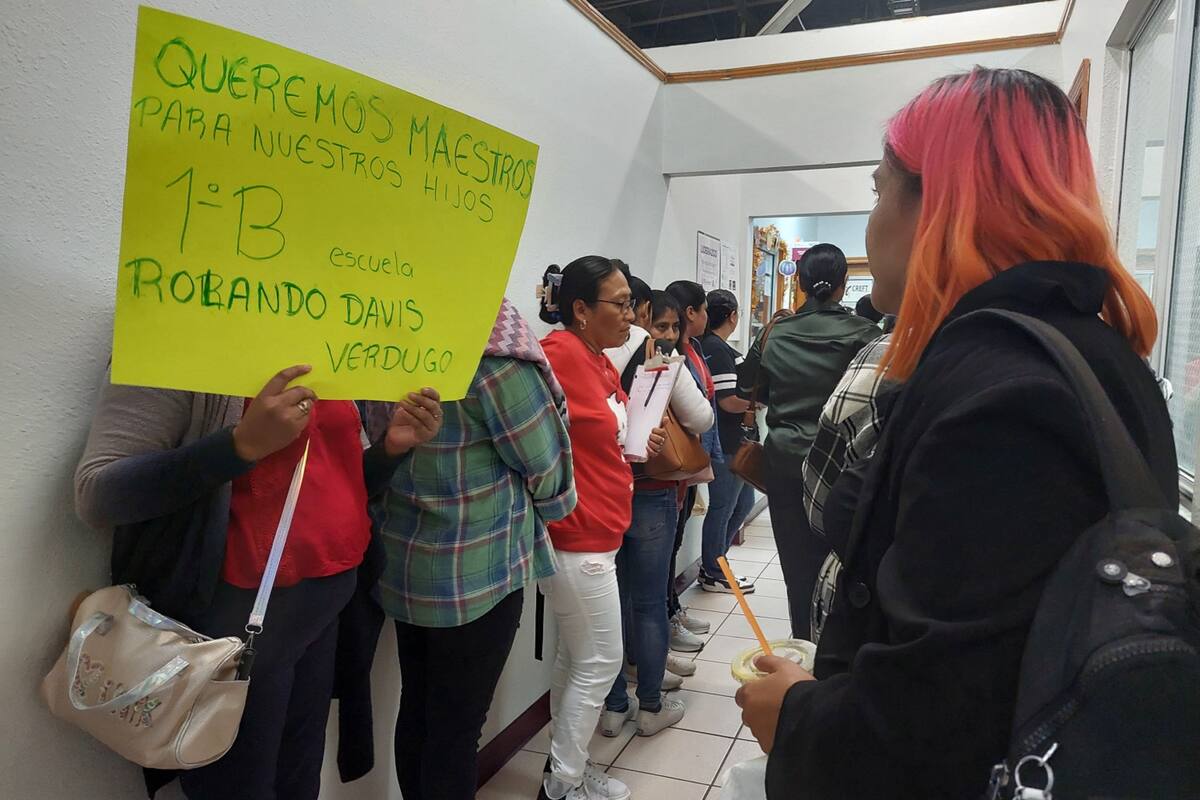 QUEREMOS MAESTROS
PARA NUESTROS HIJOS
1-°B
escuela
ROLANDO DAVIS
VERDUGO
LIDERAZGO
CREFT